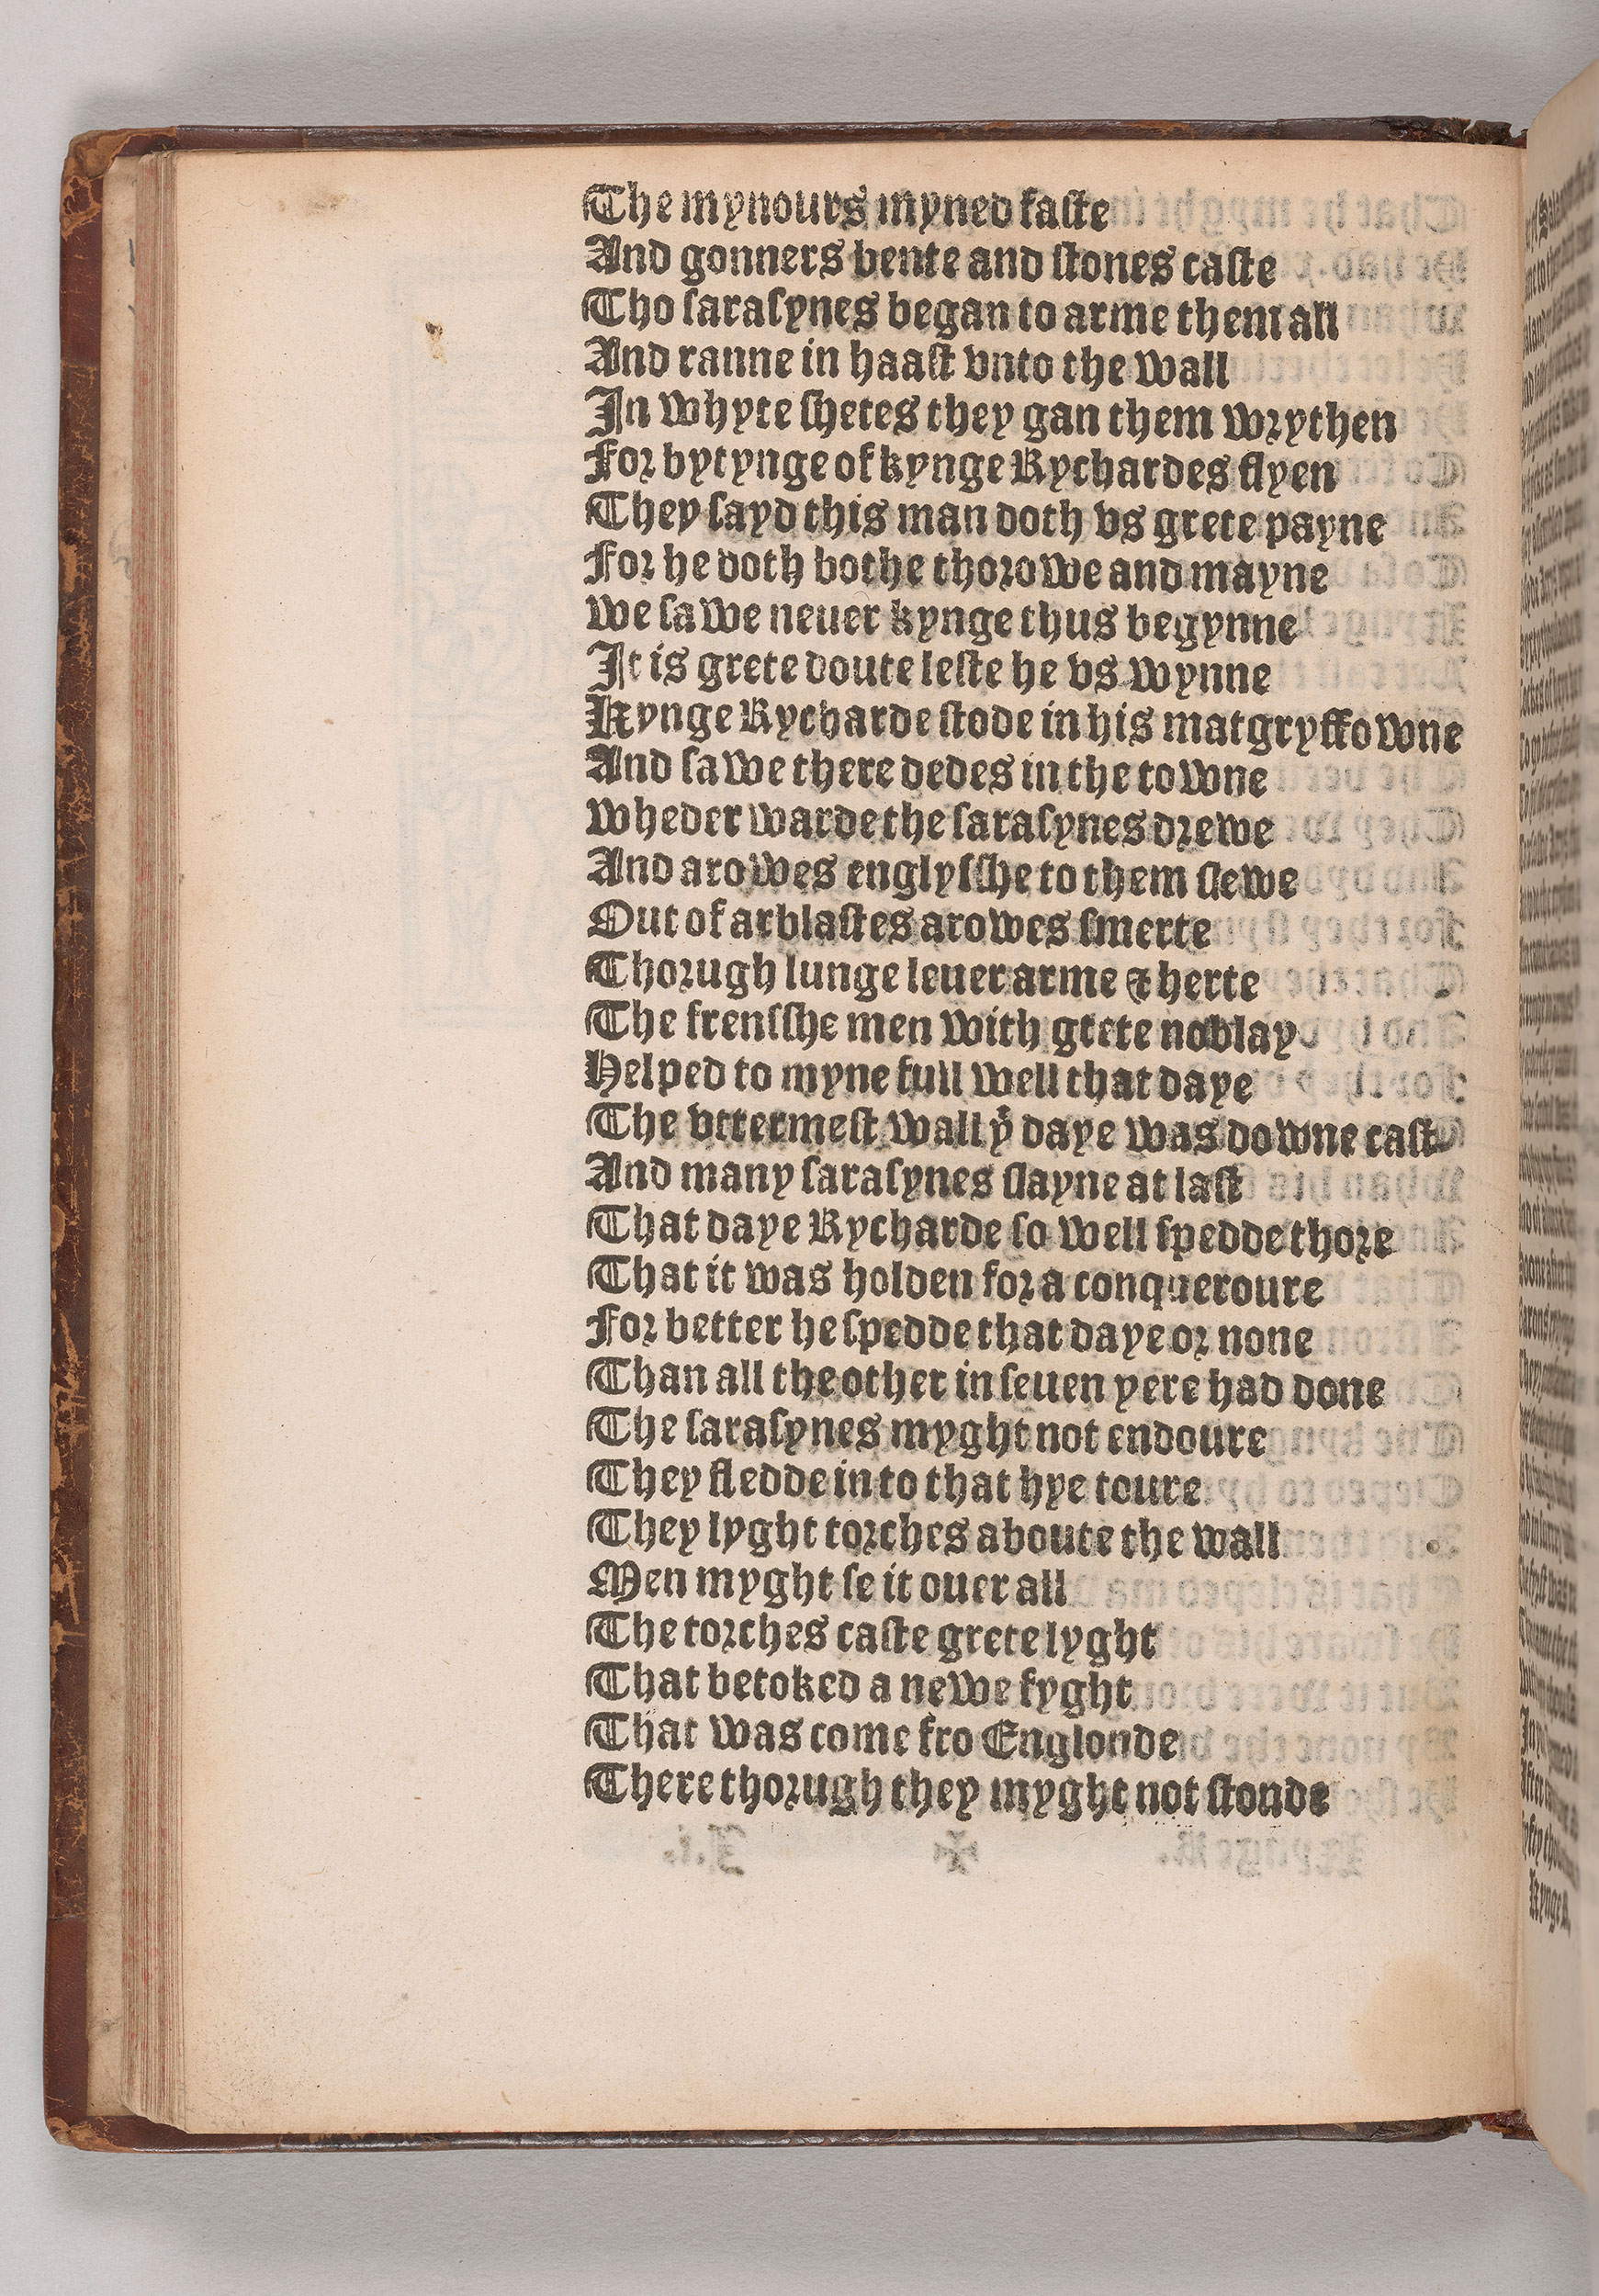 The mynours myned faste
And gonners bente and stones caste
Tho sarasynes began to arme them all
And ranne in haast vnto the wall
In whyte shetes they gan them wrythen
For bytynge of kynge Rychardes flyen
They sayd this man doth vs grete payne
For he doth bothe thorowe and mayne
we sawe neuer kynge thus begynne
It is grete doute leste he vs wynne
Kynge Rycharde stode in his matgryffowne
And sawe there dedes in the towne
wheder warde the sarasynes drewe
And arowes englysshe to them flewe
Out of arblastes arowes smerte
Thorugh lunge leuer arme & herte
The frensshe men with grete noblay
Helped to myne full well that daye
The vttermest wall yͭ daye was downe cast
And many sarasynes slayne at last
That daye Rycharde so well spedde thore
That it was holden for a conqueroure
For better he spedde that daye or none
Than all the other in seuen yere had done
The sarasynes myght not endoure
They fledde in to that hye toure
They lyght torches aboute the wall
Men myght se it ouer all
The torches caste grete lyght
That betoked a newe fyght
That was come fro Englonde
There thorugh they myght not stonde